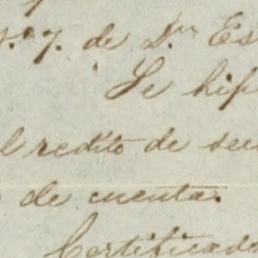 7. de D.ⁿ Es
Se hip
l redito de seu
de cuenta.
Certificado